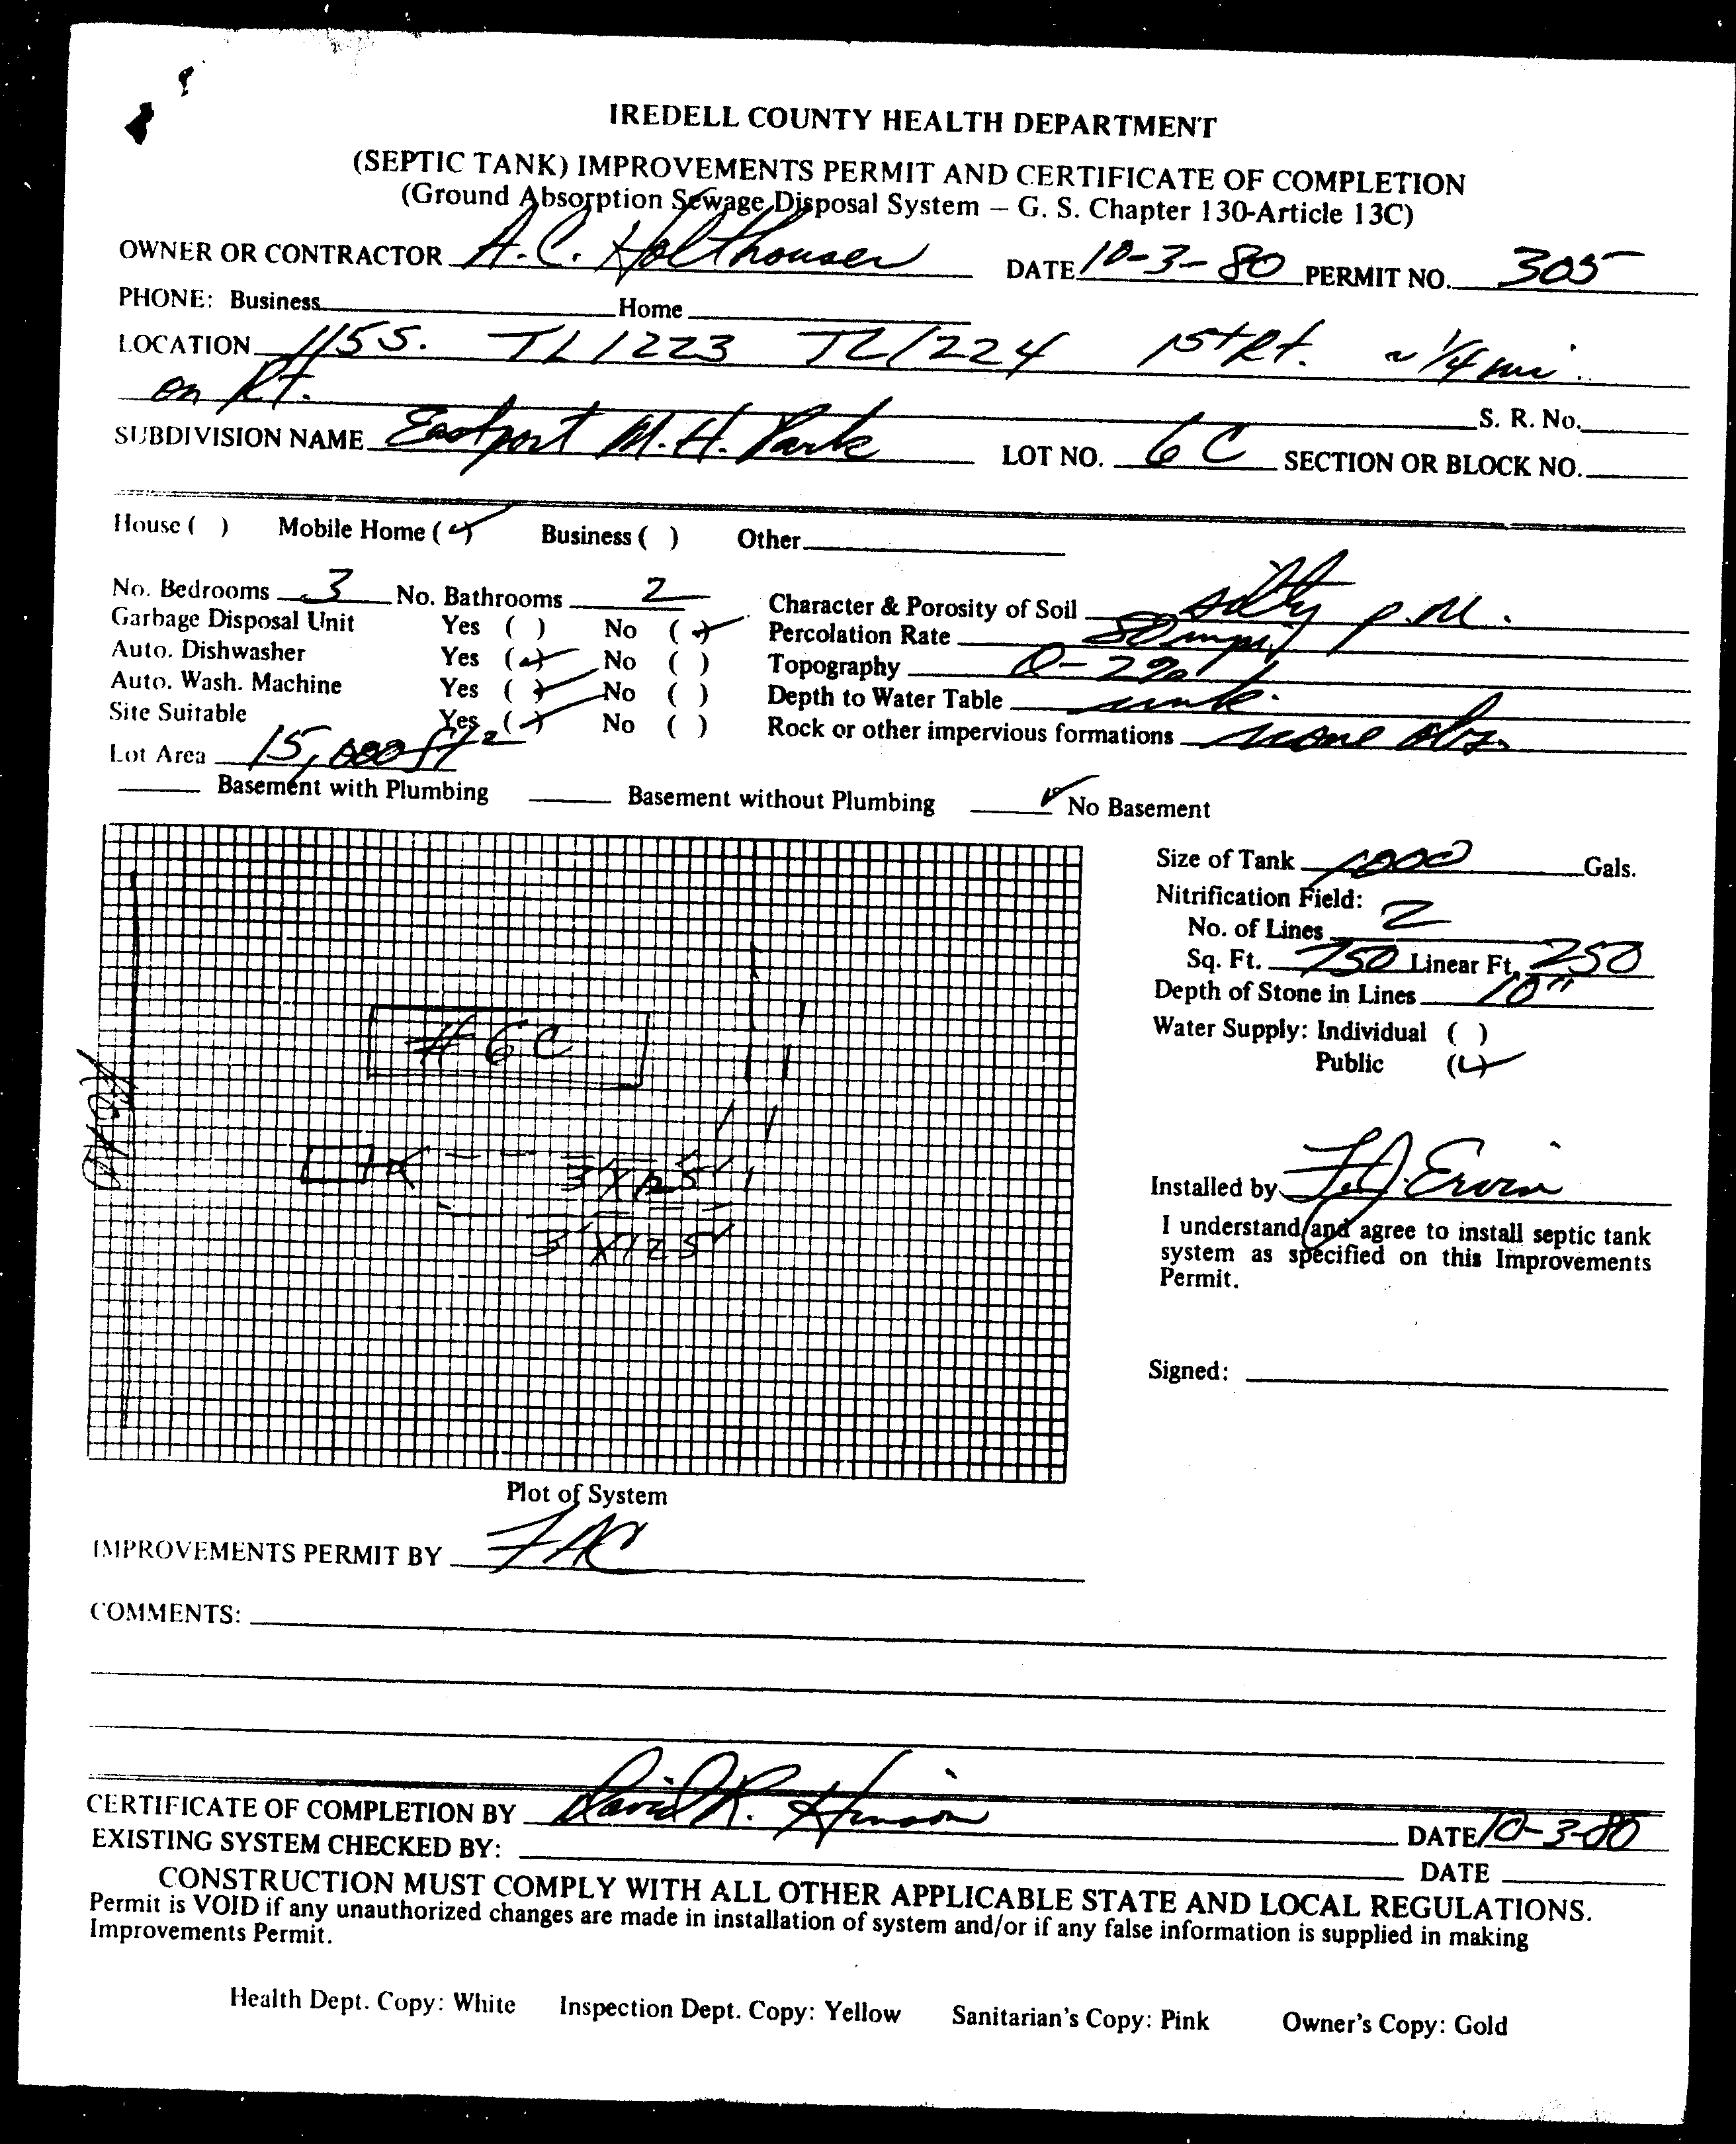 IREDELL COUNTY HEALTH DEPARTMENT
(SEPTIC TANK) IMPROVEMENTS PERMIT AND CERTIFICATE OF COMPLETION
(Ground Absorption Sewage Disposal System – G. S. Chapter 130-Article 13C)
OWNER OR CONTRACTOR A.C. Holthouser DATE 10-3-80 PERMIT NO. 305
PHONE: Business Home
LOCATION 115 S. TL 1223 TL 1224 1st Rt. ~ 1/4 mi.
on Rt.
S. R. No.
SUBDIVISION NAME Eastport M.H. Park LOT NO. 6C SECTION OR BLOCK NO.
House ( ) Mobile Home (✓) Business ( ) Other
No. Bedrooms 3 No. Bathrooms 2 Character & Porosity of Soil silty p.m.
Garbage Disposal Unit Yes ( ) No (✓) Percolation Rate 80 mpi
Auto. Dishwasher Yes (✓) No ( ) Topography 0-2%
Auto. Wash. Machine Yes (✓) No ( ) Depth to Water Table unk.
Site Suitable Yes (✓) No ( ) Rock or other impervious formations none obs.
Lot Area 15,000 ft2
Basement with Plumbing Basement without Plumbing ✓ No Basement
Size of Tank 1000 Gals.
Nitrification Field:
No. of Lines 2
Sq. Ft. 750 Linear Ft. 250
Depth of Stone in Lines 10"
Water Supply: Individual ( )
Public (✓)
# 6C
3'X125'
3'X125'
Installed by F.J. Ervin
I understand and agree to install septic tank
system as specified on this Improvements
Permit.
Signed:
Plot of System
IMPROVEMENTS PERMIT BY
COMMENTS:
CERTIFICATE OF COMPLETION BY David R. Hinson DATE 10-3-80
EXISTING SYSTEM CHECKED BY: DATE
CONSTRUCTION MUST COMPLY WITH ALL OTHER APPLICABLE STATE AND LOCAL REGULATIONS.
Permit is VOID if any unauthorized changes are made in installation of system and/or if any false information is supplied in making
Improvements Permit.
Health Dept. Copy: White Inspection Dept. Copy: Yellow Sanitarian's Copy: Pink Owner's Copy: Gold